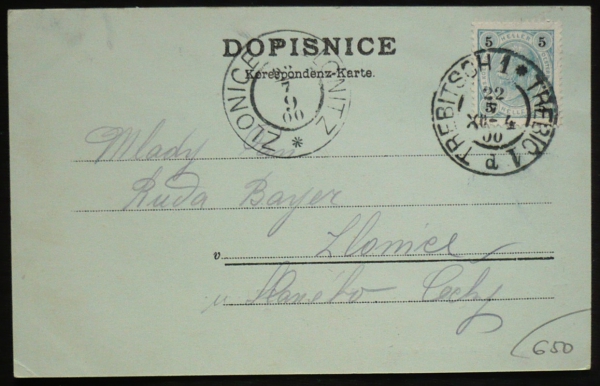 DOPISNICE
Korespondenz-Karte.
5 HELLER 5
ZLONICE ZLONITZ *
7
9
00
TREBITSCH 1 * TŘEBÍČ 1 d
22
5
XII-4
00
Mladý Pan
Ruda Bayer
v Zlonice
u Slaného Čechy
650